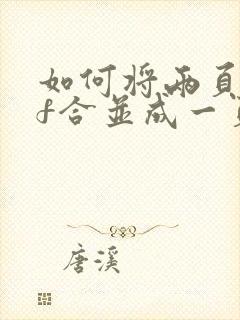 如何将两頁
f合並成一
唐溪